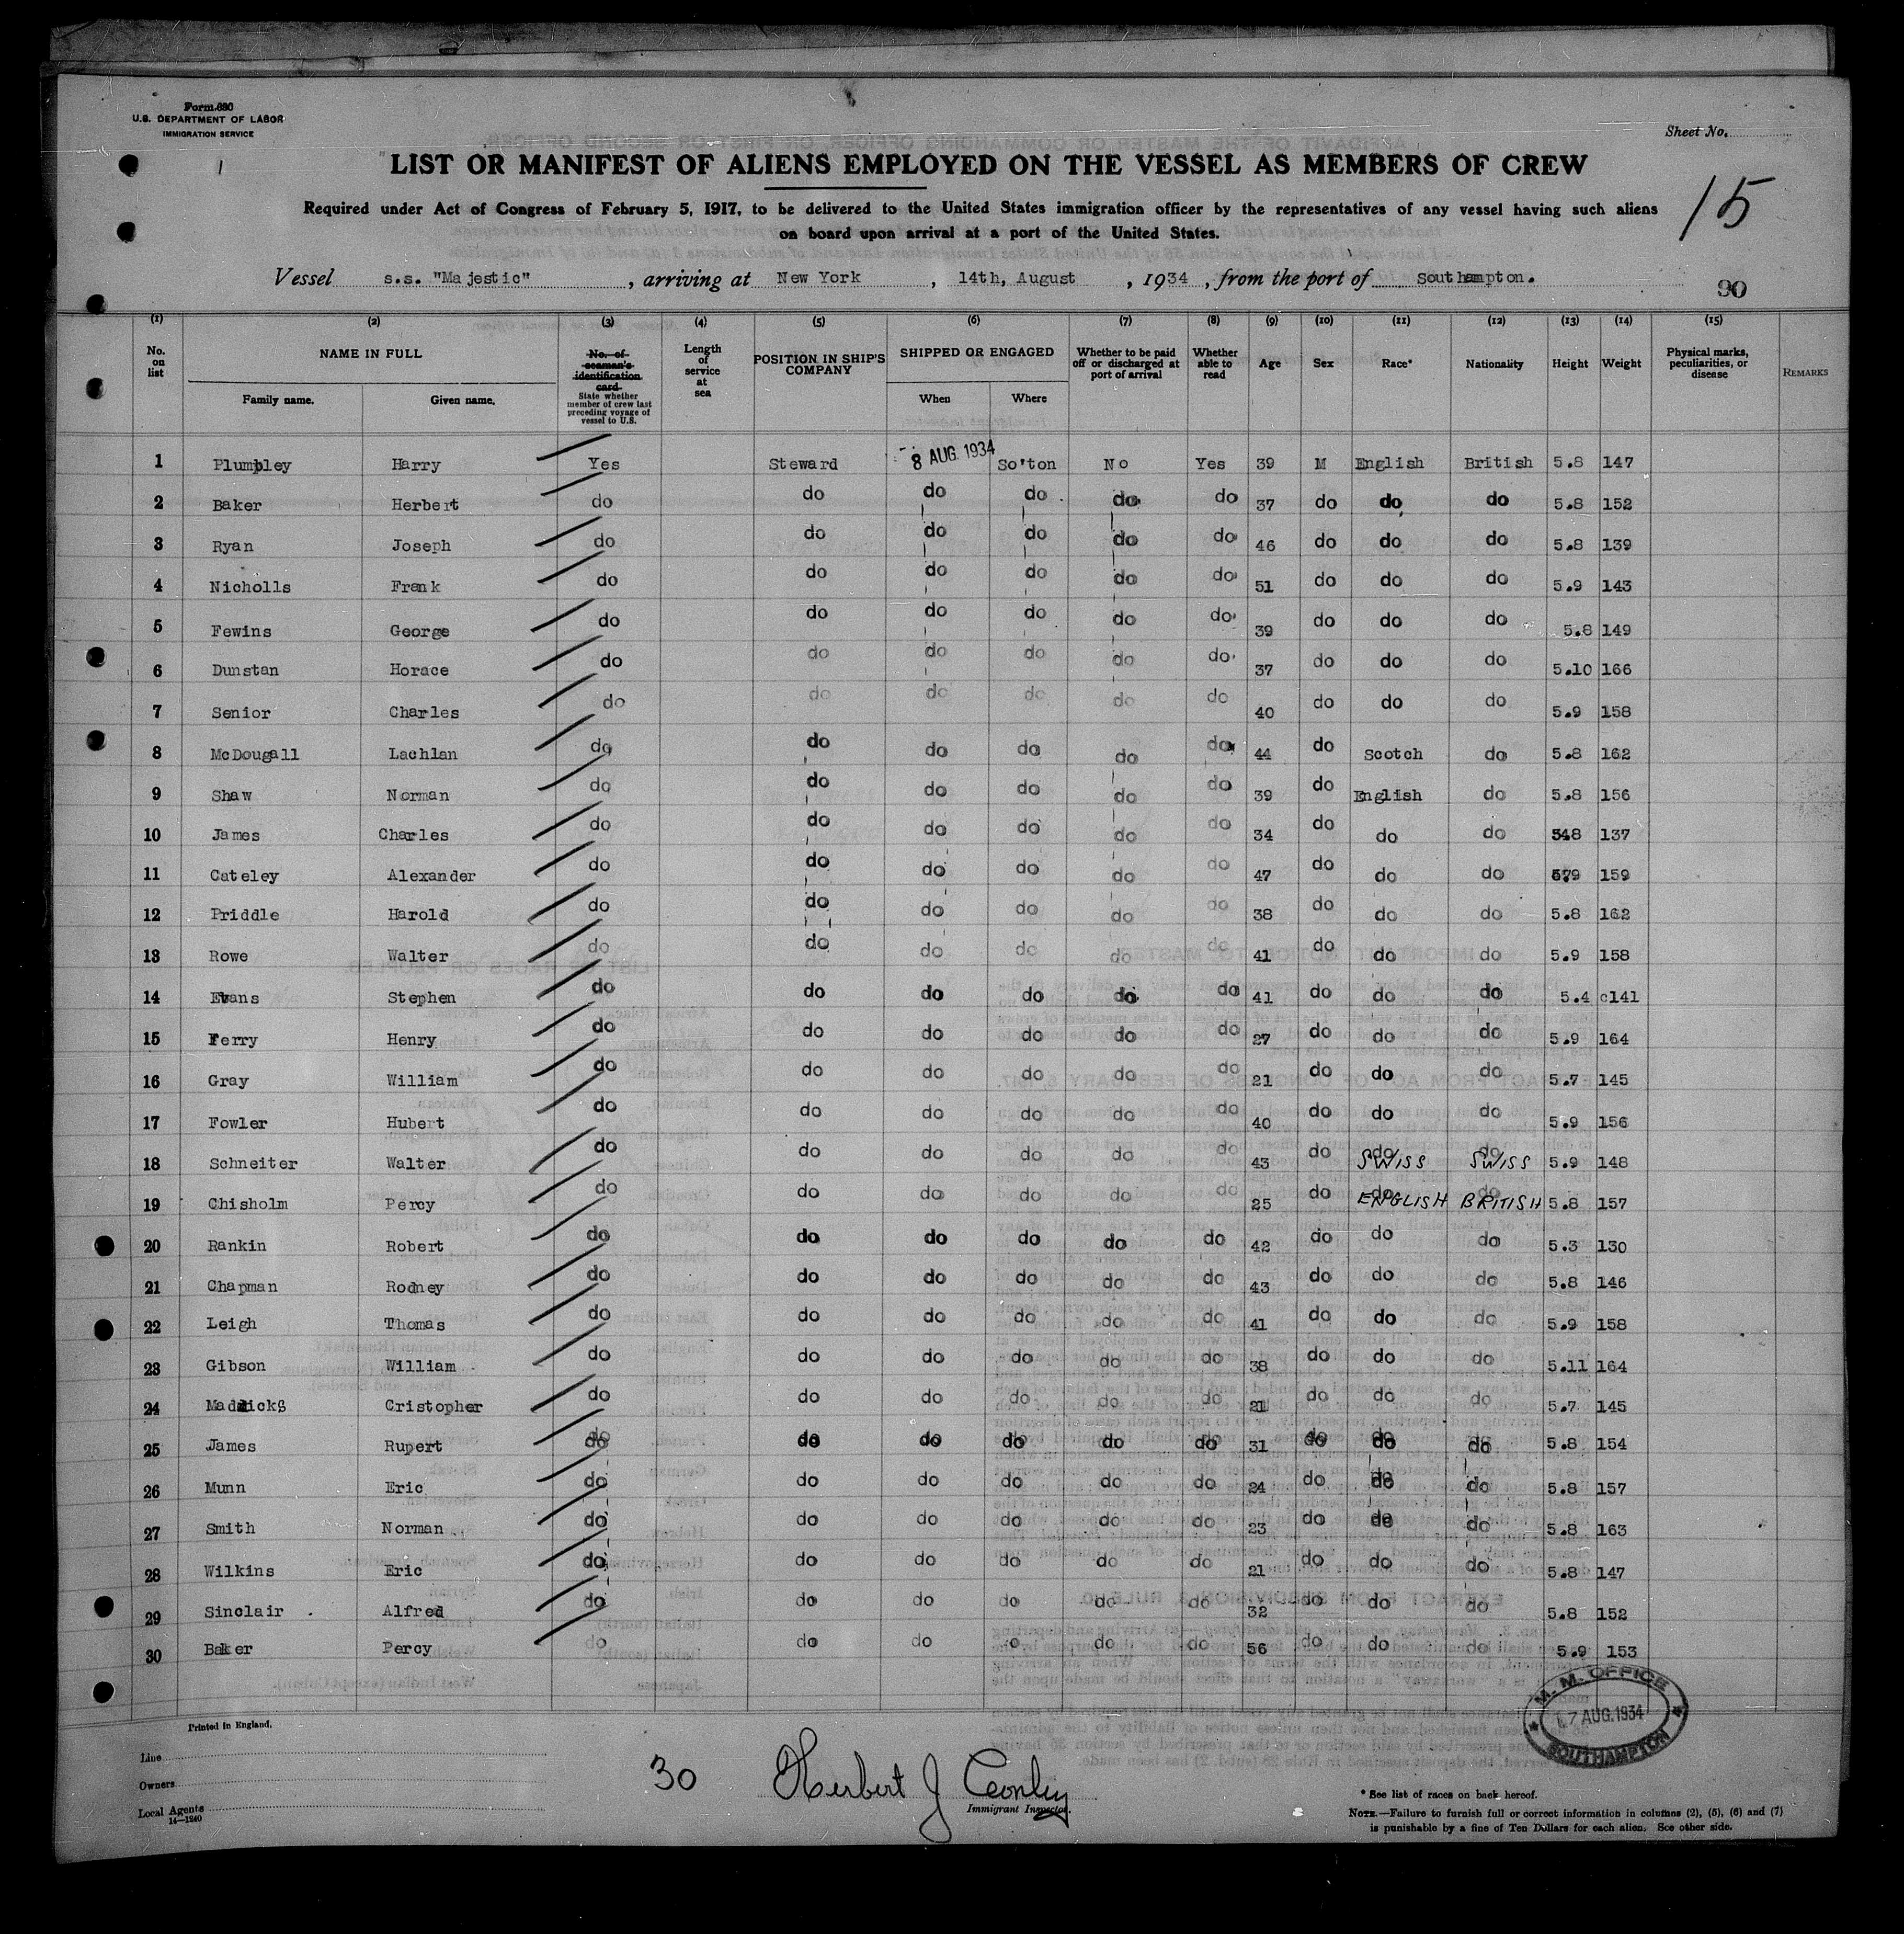 Form 680
U.S. DEPARTMENT OF LABOR
IMMIGRATION SERVICE
Sheet No.
LIST OR MANIFEST OF ALIENS EMPLOYED ON THE VESSEL AS MEMBERS OF CREW
15
Required under Act of Congress of February 5, 1917, to be delivered to the United States immigration officer by the representatives of any vessel having such aliens
on board upon arrival at a port of the United States.
Vessel s.s. "Majestic", arriving at New York, 14th, August, 1934, from the port of Southampton.
90
(1) (2) (3) (4) (5) (6) (7) (8) (9) (10) (11) (12) (13) (14) (15)
No. on list NAME IN FULL Family name. Given name. No. of seaman's identification card State whether member of crew last preceding voyage of vessel to U.S. Length of service at sea POSITION IN SHIP'S COMPANY SHIPPED OR ENGAGED When Where Whether to be paid off or discharged at port of arrival Whether able to read Age Sex Race* Nationality Height Weight Physical marks, peculiarities, or disease REMARKS
1 Plumbley Harry Yes Steward 8 AUG. 1934 So'ton No Yes 39 M English British 5.8 147
2 Baker Herbert do do do do do do 37 do do do 5.8 152
3 Ryan Joseph do do do do do do 46 do do do 5.8 139
4 Nicholls Frank do do do do do do 51 do do do 5.9 143
5 Fewins George do do do do do do 39 do do do 5.8 149
6 Dunstan Horace do do do do do do 37 do do do 5.10 166
7 Senior Charles do do do do do do 40 do do do 5.9 158
8 McDougall Lachlan do do do do do do 44 do Scotch do 5.8 162
9 Shaw Norman do do do do do do 39 do English do 5.8 156
10 James Charles do do do do do do 34 do do do 548 137
11 Cateley Alexander do do do do do do 47 do do do 5.9 159
12 Priddle Harold do do do do do do 38 do do do 5.8 162
13 Rowe Walter do do do do do do 41 do do do 5.9 158
14 Evans Stephen do do do do do do 41 do do do 5.4 c141
15 Ferry Henry do do do do do do 27 do do do 5.9 164
16 Gray William do do do do do do 21 do do do 5.7 145
17 Fowler Hubert do do do do do do 40 do do do 5.9 156
18 Schneiter Walter do do do do do do 43 do do SWISS do SWISS 5.9 148
19 Chisholm Percy do do do do do do 25 do do ENGLISH do BRITISH 5.8 157
20 Rankin Robert do do do do do do 42 do do do 5.3 130
21 Chapman Rodney do do do do do do 43 do do do 5.8 146
22 Leigh Thomas do do do do do do 41 do do do 5.9 158
23 Gibson William do do do do do do 38 do do do 5.11 164
24 Maddicks Cristopher do do do do do do 21 do do do 5.7 145
25 James Rupert do do do do do do 31 do do do 5.8 154
26 Munn Eric do do do do do do 24 do do do 5.8 157
27 Smith Norman do do do do do do 23 do do do 5.8 163
28 Wilkins Eric do do do do do do 21 do do do 5.8 147
29 Sinclair Alfred do do do do do do 32 do do do 5.8 152
30 Baker Percy do do do o do do 56 do do do 5.9 153
M. M. OFFICE
7 AUG. 1934
SOUTHAMPTON
Printed in England.
Line
Owners
Local Agents
14—1240
30
Herbert J
Immigrant Inspector.
* See list of races on back hereof.
NOTE.—Failure to furnish full or correct information in columns (2), (5), (6) and (7)
is punishable by a fine of Ten Dollars for each alien. See other side.